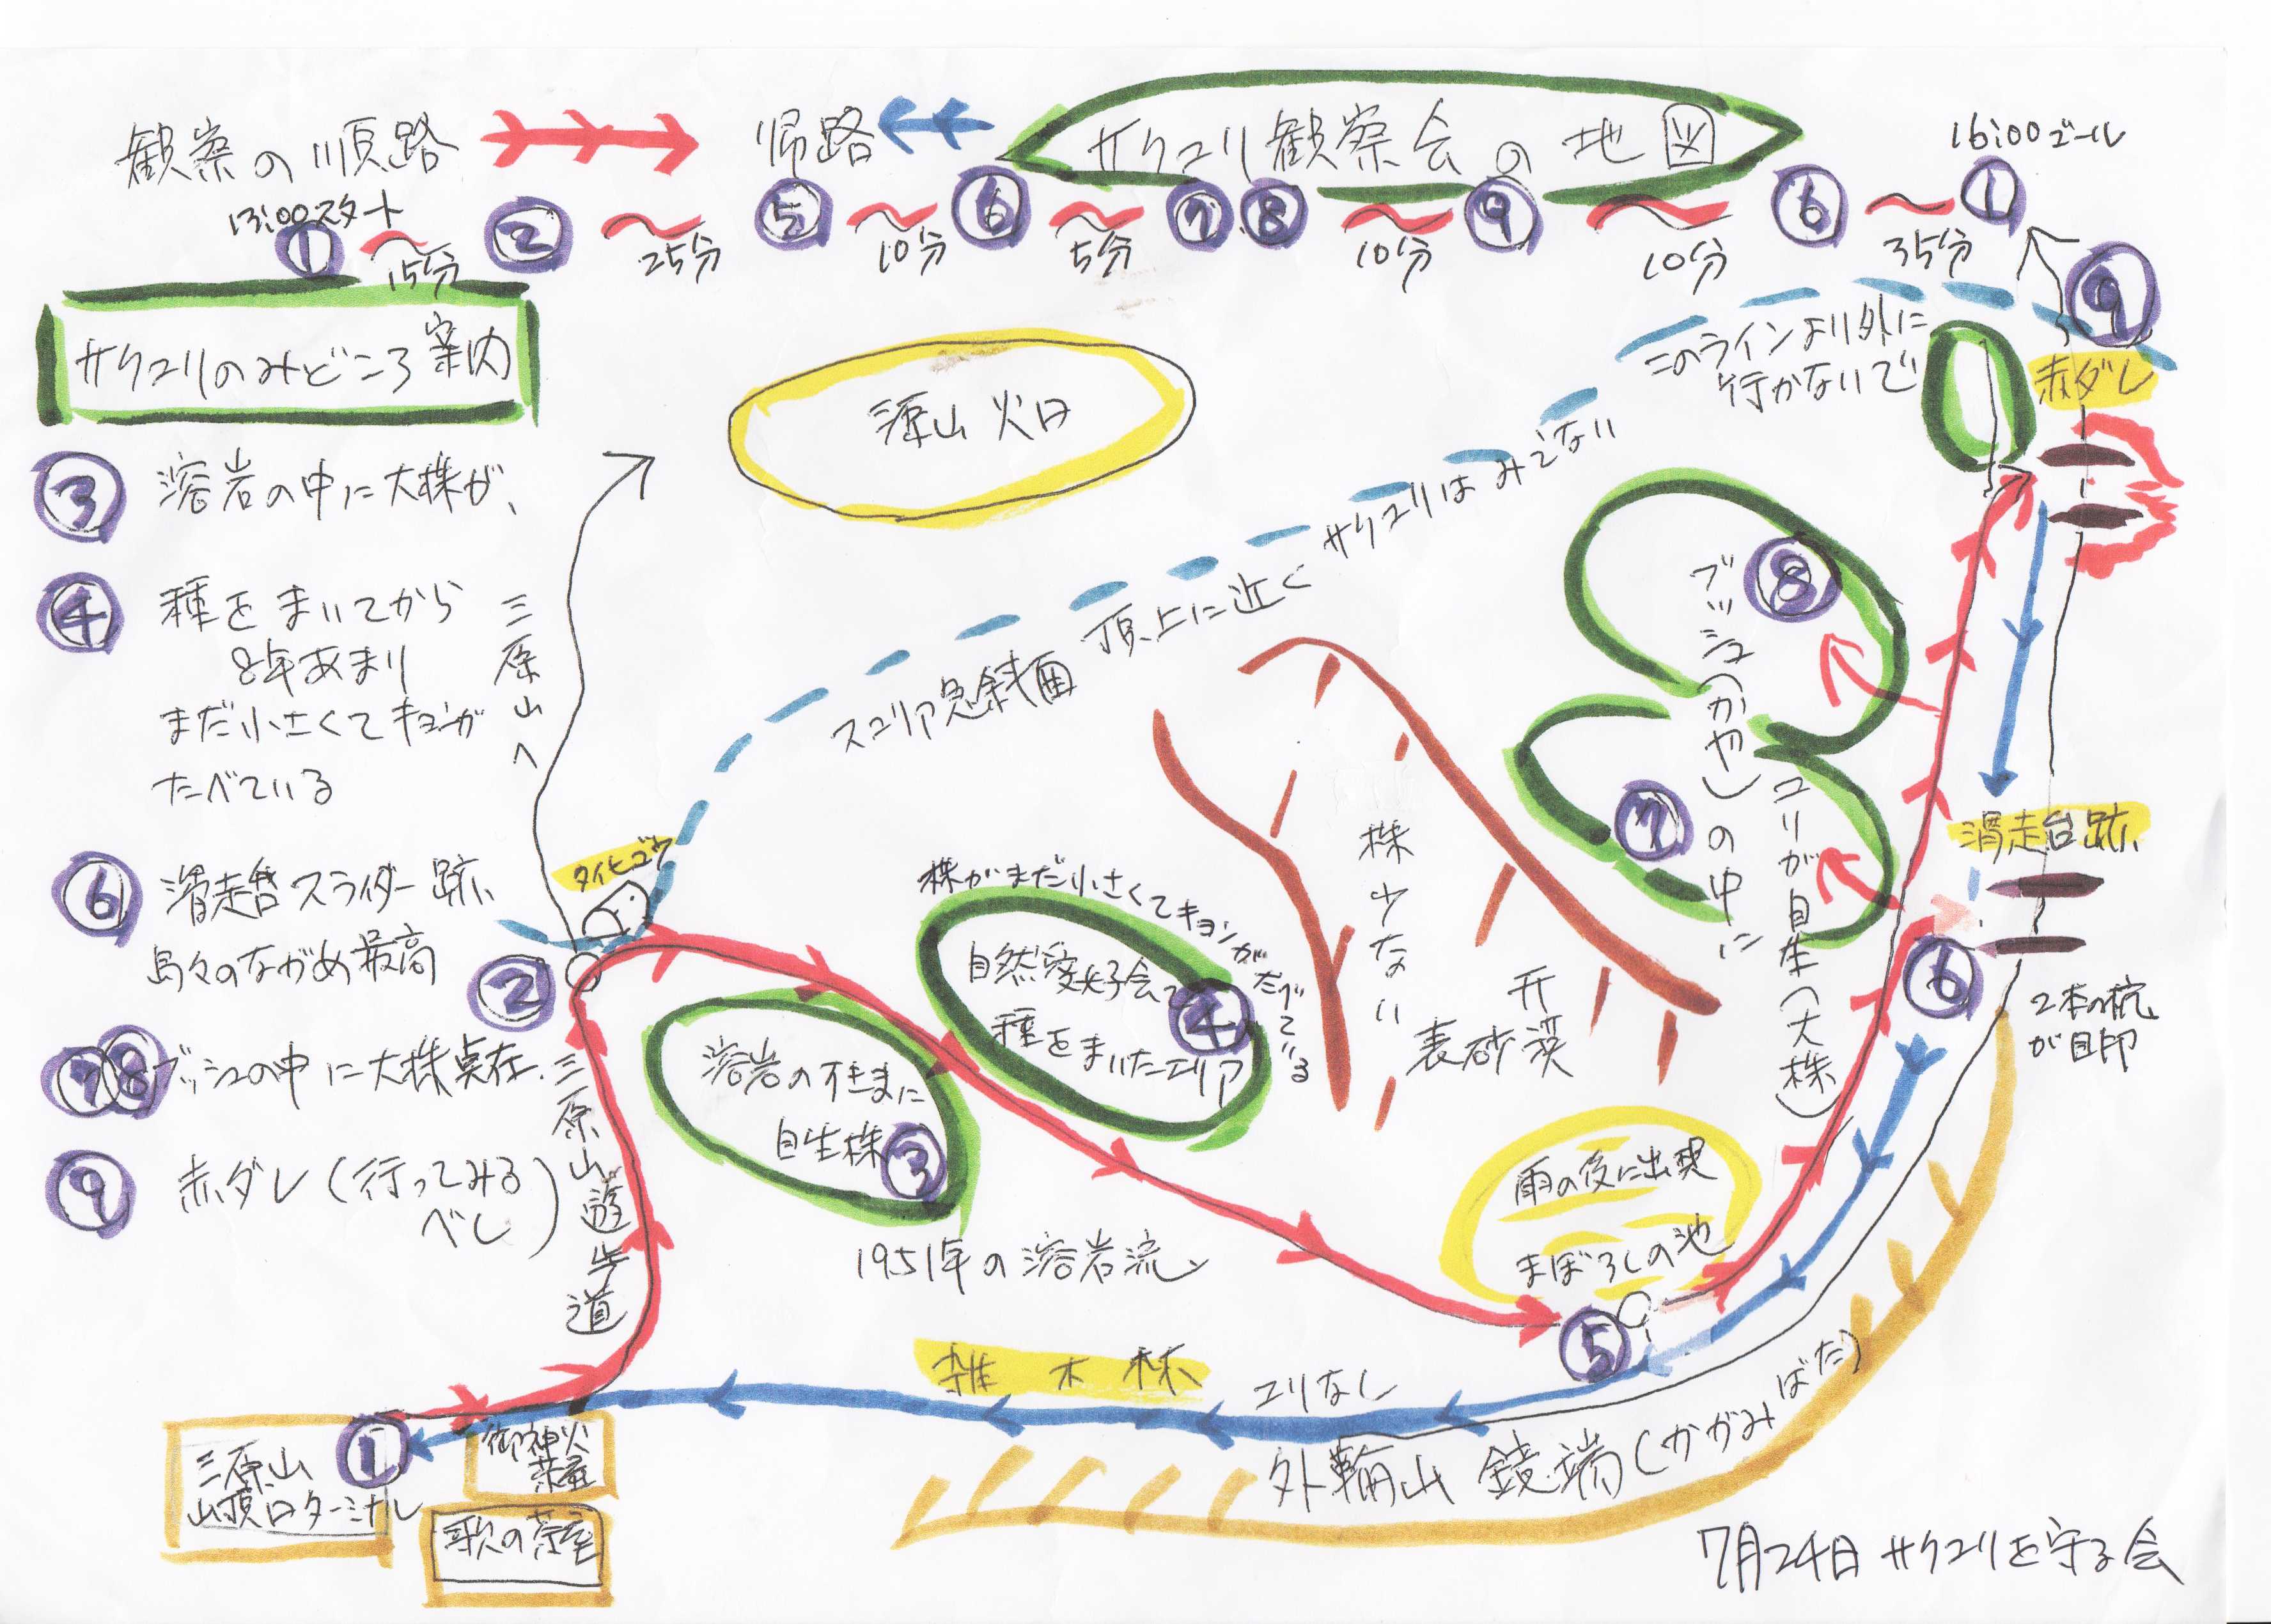 観察の順路
帰路
サクユリ観察会の地図
16:00ゴール
13:00スタート
① 15分 ② 25分 ⑤ 10分 ⑥ 5分 ⑦⑧ 10分 ⑨ 10分 ⑥ 35分 ①
サクユリのみどころ案内
③ 溶岩の中に大株が、
④ 種をまいてから
8年あまり
まだ小さくてキョンが
たべている
⑥ 滑走台スライダー跡、
島々のながめ最高
⑦⑧ ブッシュの中に大株点在、
⑨ 赤ダレ(行ってみる
べし)
三原山火口
三原山へ
このラインより外に
行かないで
⑨
赤ダレ
スコリア急斜面 頂上に近く サクユリはみでない
タイヒゴウ
②
三原山遊歩道
溶岩のすきまに
自生株 ③
株がまだ小さくてキョンがたべている
自然愛好会で
種をまいたエリア
④
1951年の溶岩流
株少ない
表砂漠
⑧
⑦
ブッシュ(かや)の中に
ユリが自生(大株)
滑走台跡
⑥
2本の杭
が目印
雨の後に出現
まぼろしの池
⑤
雑木林
ユリなし
外輪山 鏡端(かがみばた)
三原山
山頂口ターミナル
①
御神火
茶屋
歌の茶屋
7月24日 サクユリを守る会